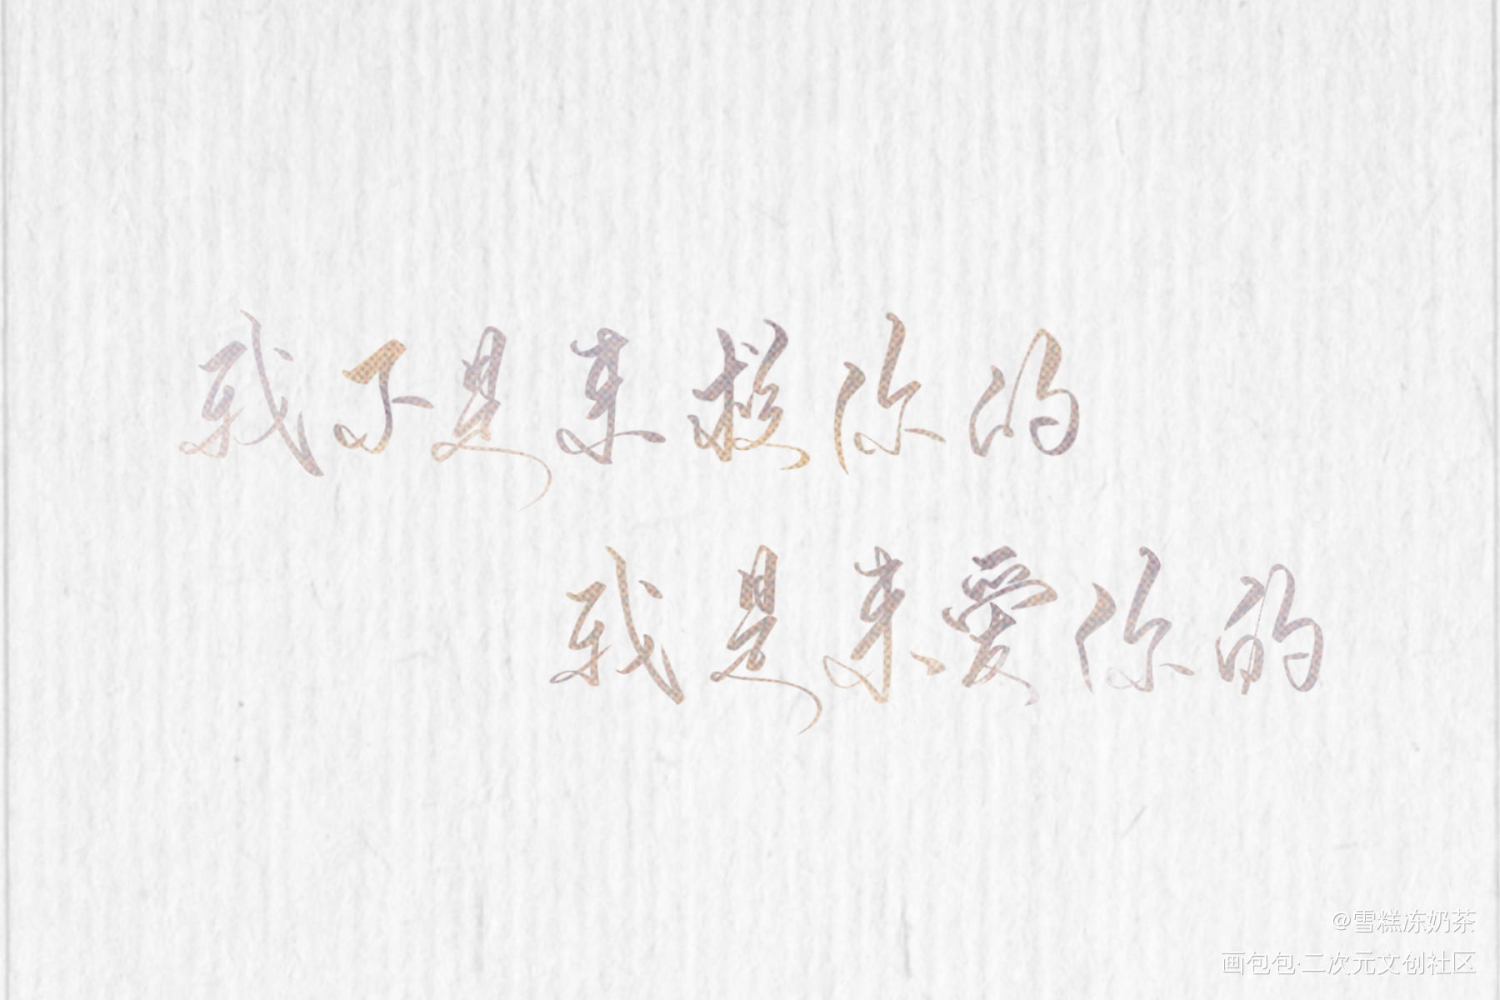 我不是来救你的
我是来愛你的
@雪糕冻奶茶
画包包·二次元文创社区